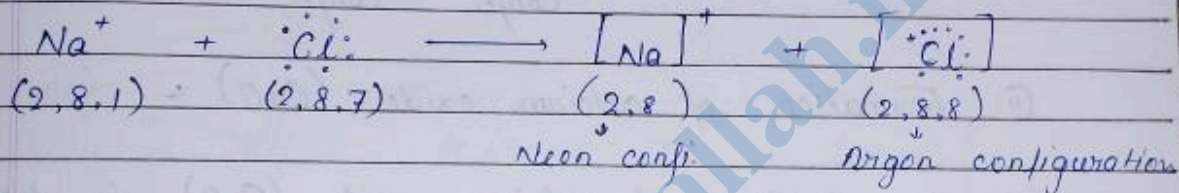 Na⁺ + Cl ⟶ [Na]⁺ + [Cl]
(2,8,1) (2,8,7) (2,8) (2,8,8)
Neon confi. Argon configuration